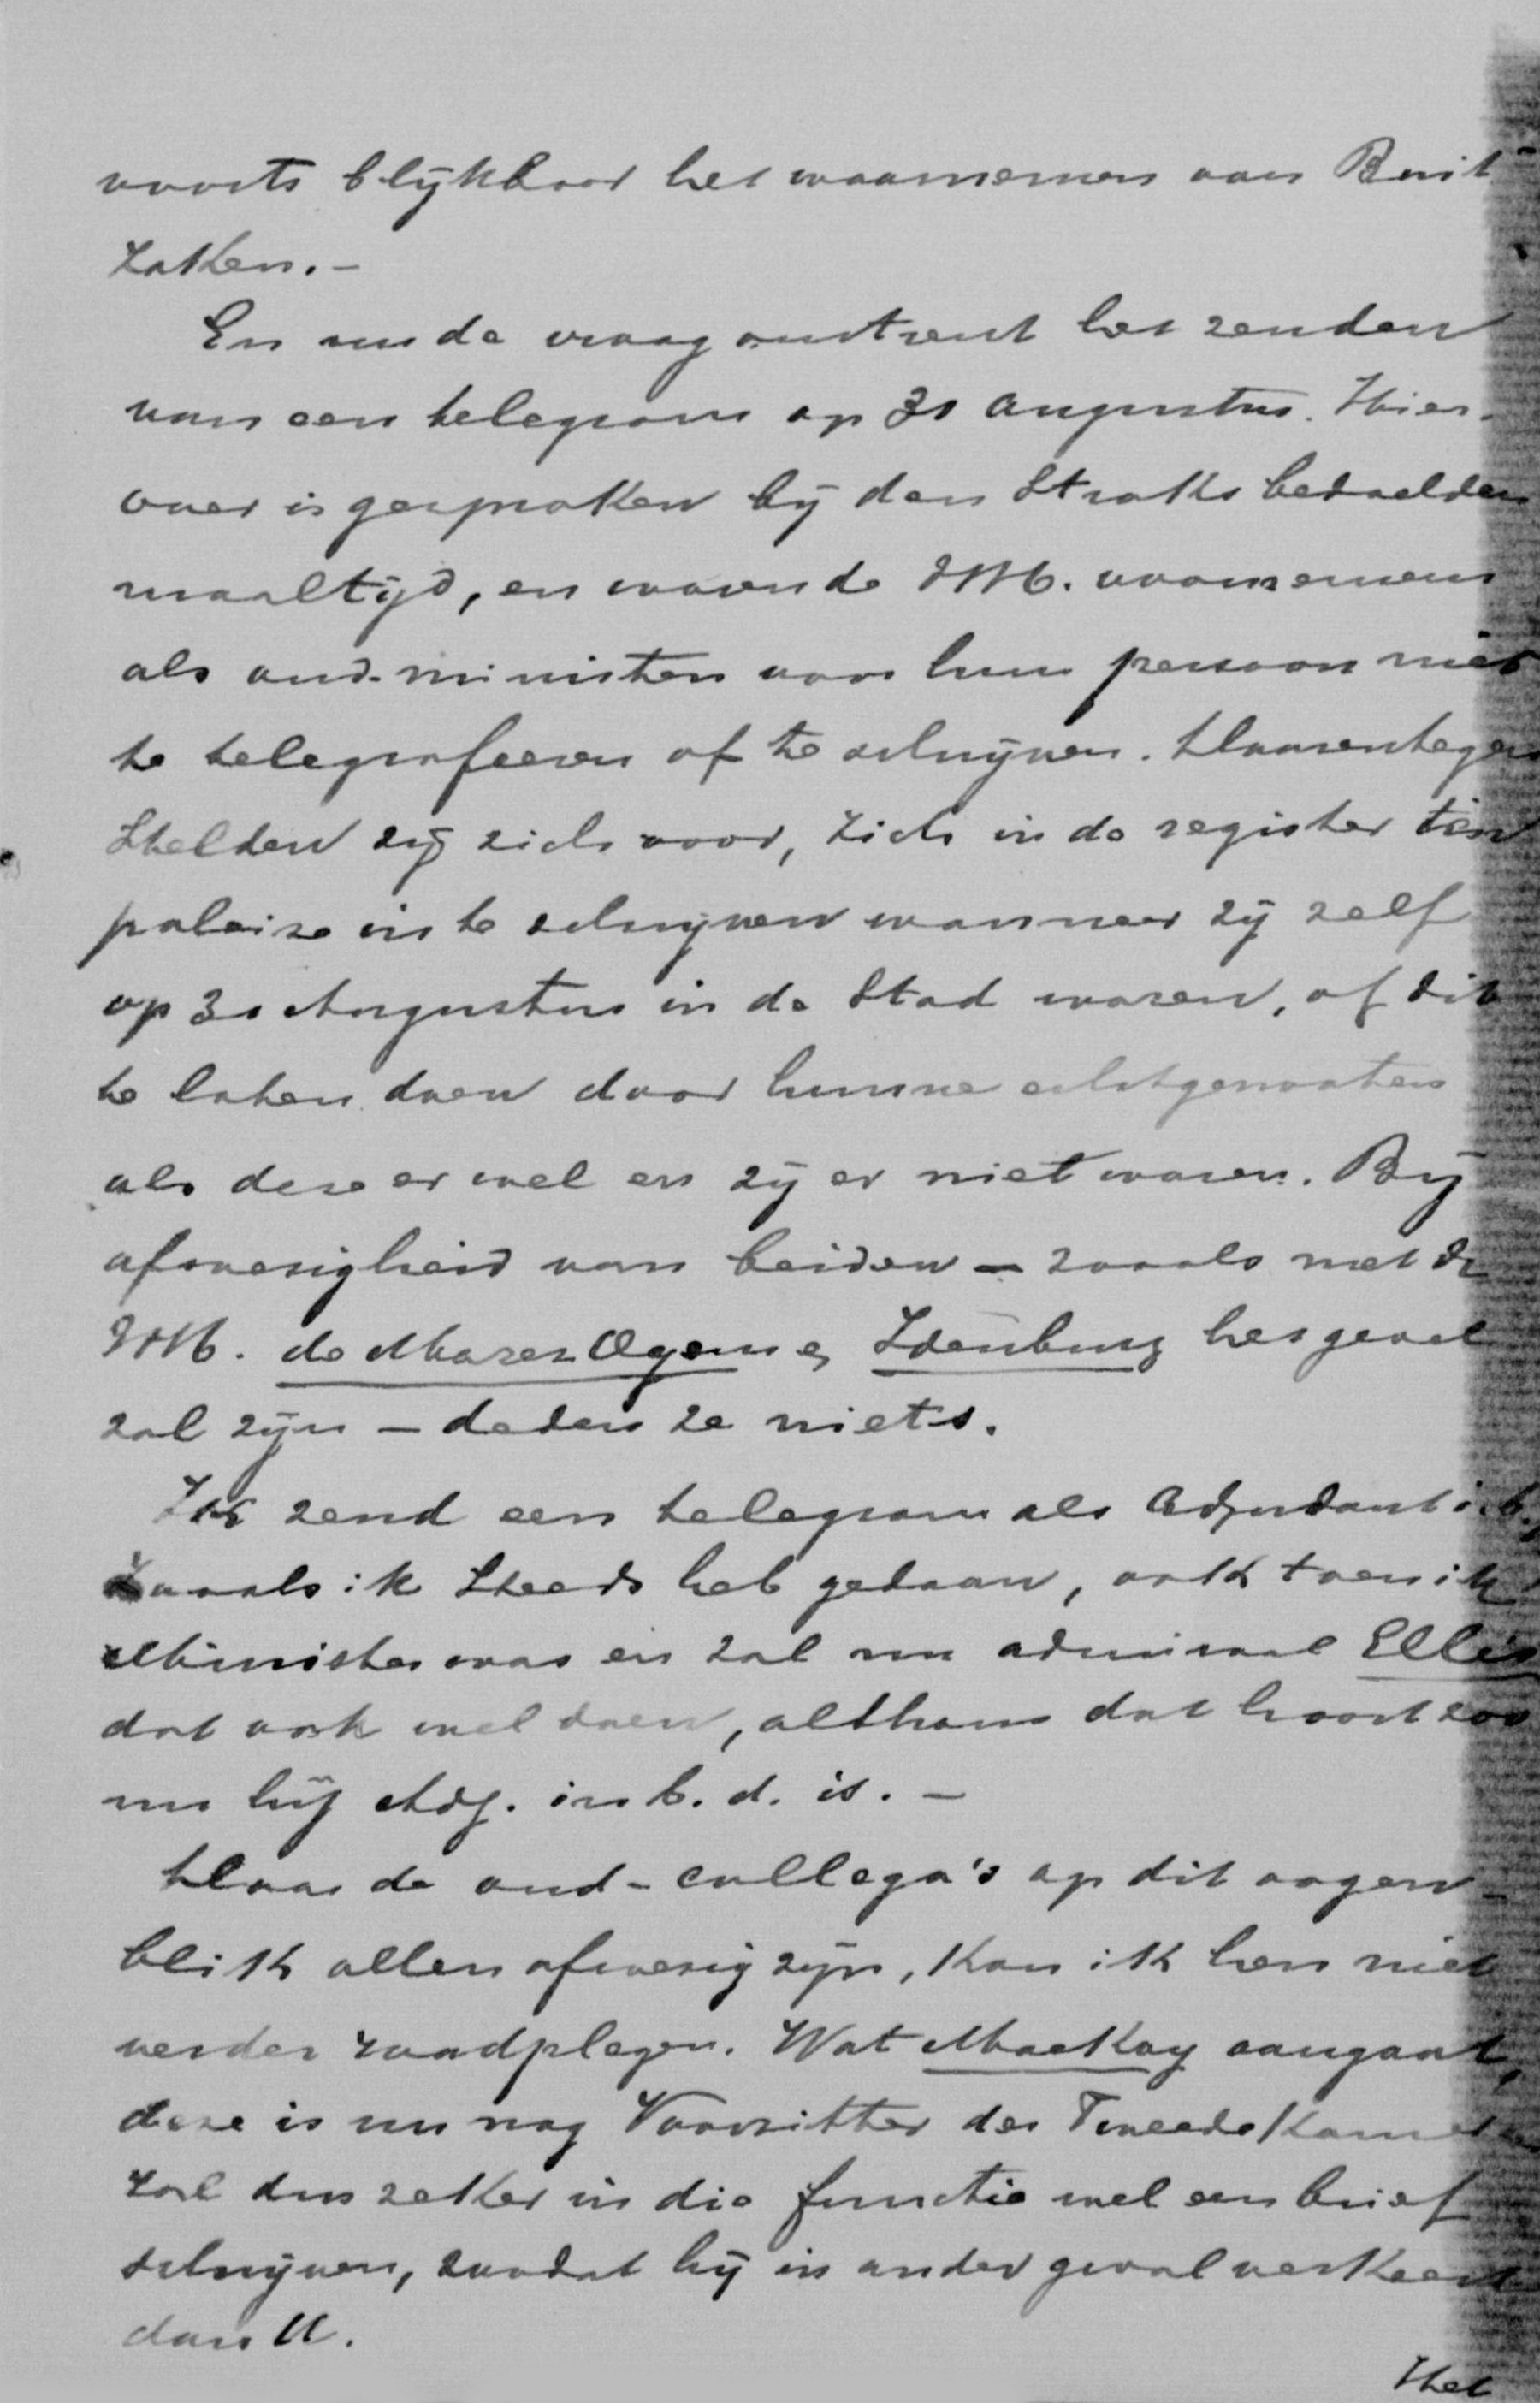 voorts blijkbaar het waarnemen van Buit
zaken. -
En nu de vraag omtrent het zenden
van een telegram op 31 Augustus. Hier-
over is gesproken bij den straks bedoelden
maaltijd, en waren de HH. voornemens
als oud-ministers voor hun persoon niet
te telegrafeeren of te schrijven. Daarentegen
stelden zij zich voor, zich in de register ten
paleize in te schrijven wanneer zij zelf
op 31 Augustus in de stad waren, of dit
te laten doen door hunne echtgenooten
als deze er wel en zij er niet waren. Bij
afwezigheid van beiden - zooals met de
HH. de Marez Oyens & Idenburg het geval
zal zijn - deden ze niets.
Ik zend een telegram als Adjudant i. b.
zooals ik steeds heb gedaan, ook toen ik
Minister was en zal nu admiraal Ellis
dat ook wel doen, althans dat hoort zoo
nu hij Adj. in b. d. is. -
Daar de oud-collega's op dit oogen-
blik allen afwezig zijn, kan ik hen niet
verder raadplegen. Wat Mackay aangaat,
deze is nu nog Voorzitter der Tweede Kamer
zal dus zeker in die functie wel een brief
schrijven, zoodat hij in ander geval verkeert
dan U.
Het